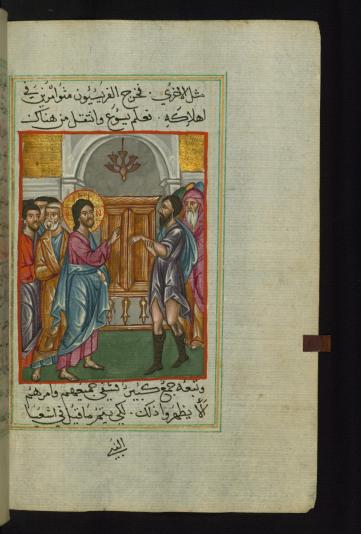 مثل الاخرى . فخرج الفريسيون متوامرين في
اهلاكه . فعلم يسوع وانتقل من هناك
وتبعه جمع كبير فشفى جميعهم وامرهم
ألا يظهروا ذلك . لكي يتم ما قيل في اشعيا
النبي